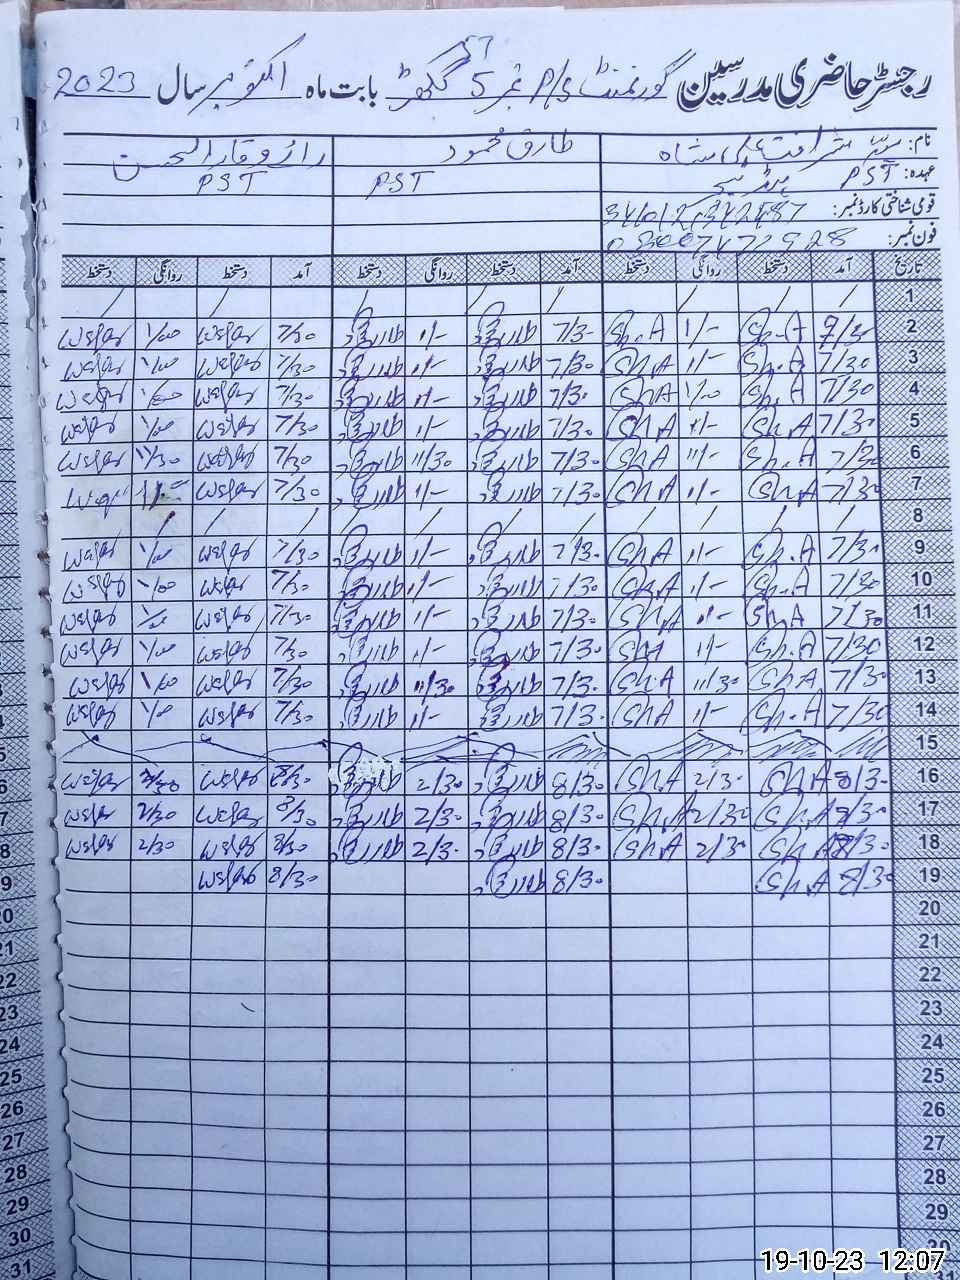 رجسٹر حاضری مدرسین گورنمنٹ P/S نمبر 5 گکھڑ بابت ماہ اکتوبر سال 2023
نام: سید شرافت علی شاہ طارق محمود راؤ وقار الحسن
عہدہ: PST ہیڈ ٹیچر PST PST
قومی شناختی کارڈ نمبر:
فون نمبر:
تاریخ آمد دستخط روانگی دستخط آمد دستخط روانگی دستخط آمد دستخط روانگی دستخط
1 / / / / / / /
2 7/30 Sh.A 1/- Sh.A 7/30 طارق 1/- طارق 7/30 وقار 1/00 وقار
3 7/30 Sh.A 1/- Sh.A 7/30 طارق 1/- طارق 7/30 وقار 1/00 وقار
4 7/30 Sh.A 1/00 Sh.A 7/30 طارق 1/- طارق 7/30 وقار 1/00 وقار
5 7/30 Sh.A 1/- Sh.A 7/30 طارق 1/- طارق 7/30 وقار 1/00 وقار
6 7/30 Sh.A 11/- Sh.A 7/30 طارق 11/30 طارق 7/30 وقار 11/30 وقار
7 7/30 Sh.A 1/- Sh.A 7/30 طارق 1/- طارق 7/30 وقار وقار
8 / / / / / / / / / / /
9 7/30 Sh.A 1/- Sh.A 7/30 طارق 1/- طارق 7/30 وقار 1/00 وقار
10 7/30 Sh.A 1/- Sh.A 7/30 طارق 1/- طارق 7/30 وقار 1/00 وقار
11 7/30 Sh.A 1/- Sh.A 7/30 طارق 1/- طارق 7/30 وقار 1/00 وقار
12 7/30 Sh.A 1/- Sh.A 7/30 طارق 1/- طارق 7/30 وقار 1/00 وقار
13 7/30 Sh.A 11/30 Sh.A 7/30 طارق 11/30 طارق 7/30 وقار 1/00 وقار
14 7/30 Sh.A 1/- Sh.A 7/30 طارق 1/- طارق 7/30 وقار 1/00 وقار
15
16 8/30 Sh.A 2/30 Sh.A 8/30 طارق 2/30 طارق 8/30 وقار 2/30 وقار
17 8/30 Sh.A 2/30 Sh.A 8/30 طارق 2/30 طارق 8/30 وقار 2/30 وقار
18 8/30 Sh.A 2/30 Sh.A 8/30 طارق 2/30 طارق 8/30 وقار 2/30 وقار
19 8/30 Sh.A 8/30 طارق 8/30 وقار
20
21
22
23
24
25
26
27
28
29
30
31
19-10-23 12:07